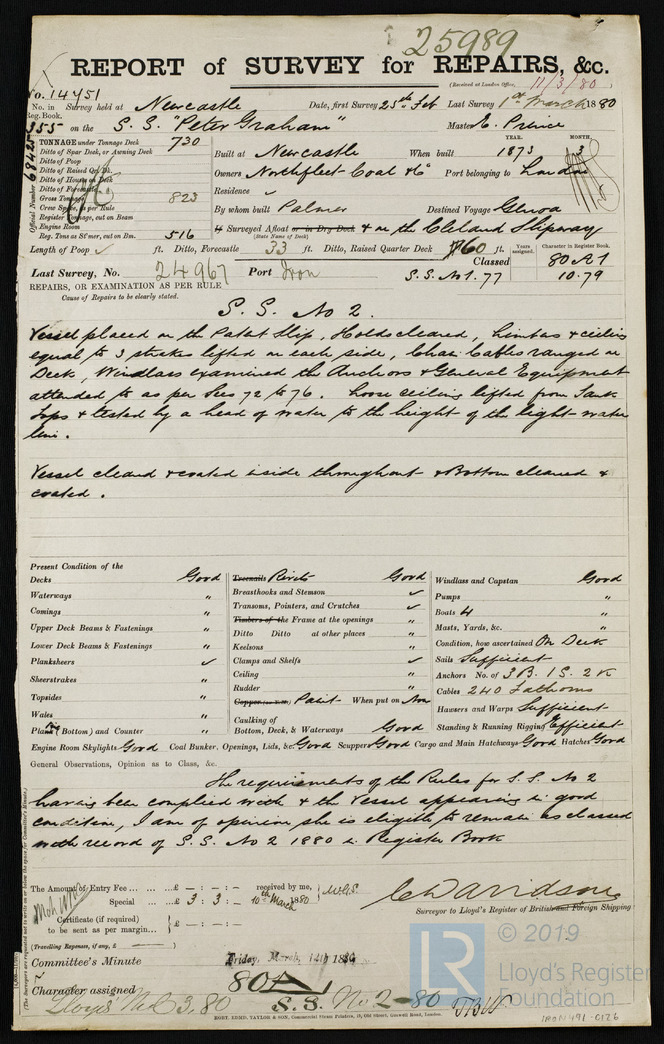 25989
REPORT of SURVEY for REPAIRS, &c.
(Received at London Office, 11/3/80)
No. 14451
No. in Survey held at Newcastle Date, first Survey 25th Feb Last Survey 1st March 1880
Reg. Book.
355 on the S.S. "Peter Graham" Master E. Prince
TONNAGE under Tonnage Deck 730
Ditto of Spar Deck, or Awning Deck
Ditto of Poop
Ditto of Raised Qr. Dk.
Ditto of House on Deck
Ditto of Forecastle
Gross Tonnage 823
Crew Space, as per Rule
Register Tonnage, cut on Beam
Engine Room
Reg. Tons as St'mer, cut on Bm. 516
Official Number 68425
YEAR. MONTH.
Built at Newcastle When built 1873 3
Owners Northfleet Coal &Co Port belonging to London
Residence
By whom built Palmer Destined Voyage Genoa
If Surveyed Afloat or in Dry Dock & on the Cleland Slipway
(State Name of Dock)
Length of Poop ft. Ditto, Forecastle 33 ft. Ditto, Raised Quarter Deck 60 ft. Years assigned. Character in Register Book.
Classed 80 A1
Last Survey, No. 24967 Port Iron S.S. No 1. 77 10.79
REPAIRS, OR EXAMINATION AS PER RULE
Cause of Repairs to be clearly stated.
S.S. No 2.
Vessel placed on the Patent Slip, Holds cleared, Limbers & ceiling
equal to 3 strakes lifted on each side, Chain Cables ranged on
Deck, Windlass examined the Anchors & General Equipment
attended to as per Secs 72 to 76. Loose ceiling lifted from Tank
Tops & tested by a head of water to the height of the light water
line.
Vessel cleaned & coated inside throughout & Bottom cleaned &
coated.
Present Condition of the
Decks Good
Waterways "
Comings "
Upper Deck Beams & Fastenings "
Lower Deck Beams & Fastenings "
Planksheers ✓
Sheerstrakes "
Topsides "
Wales "
Plating (Bottom) and Counter "
Treenails Rivets Good
Breasthooks and Stemson ✓
Transoms, Pointers, and Crutches ✓
Timbers of the Frame at the openings "
Ditto Ditto at other places "
Keelsons "
Clamps and Shelfs ✓
Ceiling "
Rudder "
Copper Paint When put on Now
Caulking of
Bottom, Deck, & Waterways Good
Windlass and Capstan Good
Pumps "
Boats 4 "
Masts, Yards, &c. "
Condition, how ascertained On Deck
Sails Sufficient
Anchors No. of 3 B. 1 S. 2 K
Cables 240 Fathoms
Hawsers and Warps Sufficient
Standing & Running Rigging Efficient
Engine Room Skylights Good Coal Bunker. Openings, Lids, &c. Good Scuppers Good Cargo and Main Hatchways Good Hatches Good
General Observations, Opinion as to Class, &c.
The requirements of the Rules for S.S. No 2
having been complied with & the Vessel appearing in good
condition, I am of opinion she is eligible to remain as classed
with record of S.S. No 2 1880 in Register Book
The Amount of Entry Fee ... ... ... £ - : - : - received by me,
Special ... ... £ 3 : 3 : - 10th March 1880
Certificate (if required) £ - : - : -
to be sent as per margin...
(Travelling Expenses, if any, £ )
C Davidson
Surveyor to Lloyd's Register of British and Foreign Shipping
Committee's Minute Friday, March, 12th 1880
Character assigned 80A1
Lloyds' Ncl 3.80 S.S. No 2-80
KORT, EHMD. TAYLOR & SON, Commercial Steam Printers, 19, Old Street, Goswell Road, London.
© 2019
LR
Lloyd's Register
Foundation
IRON 491-0126